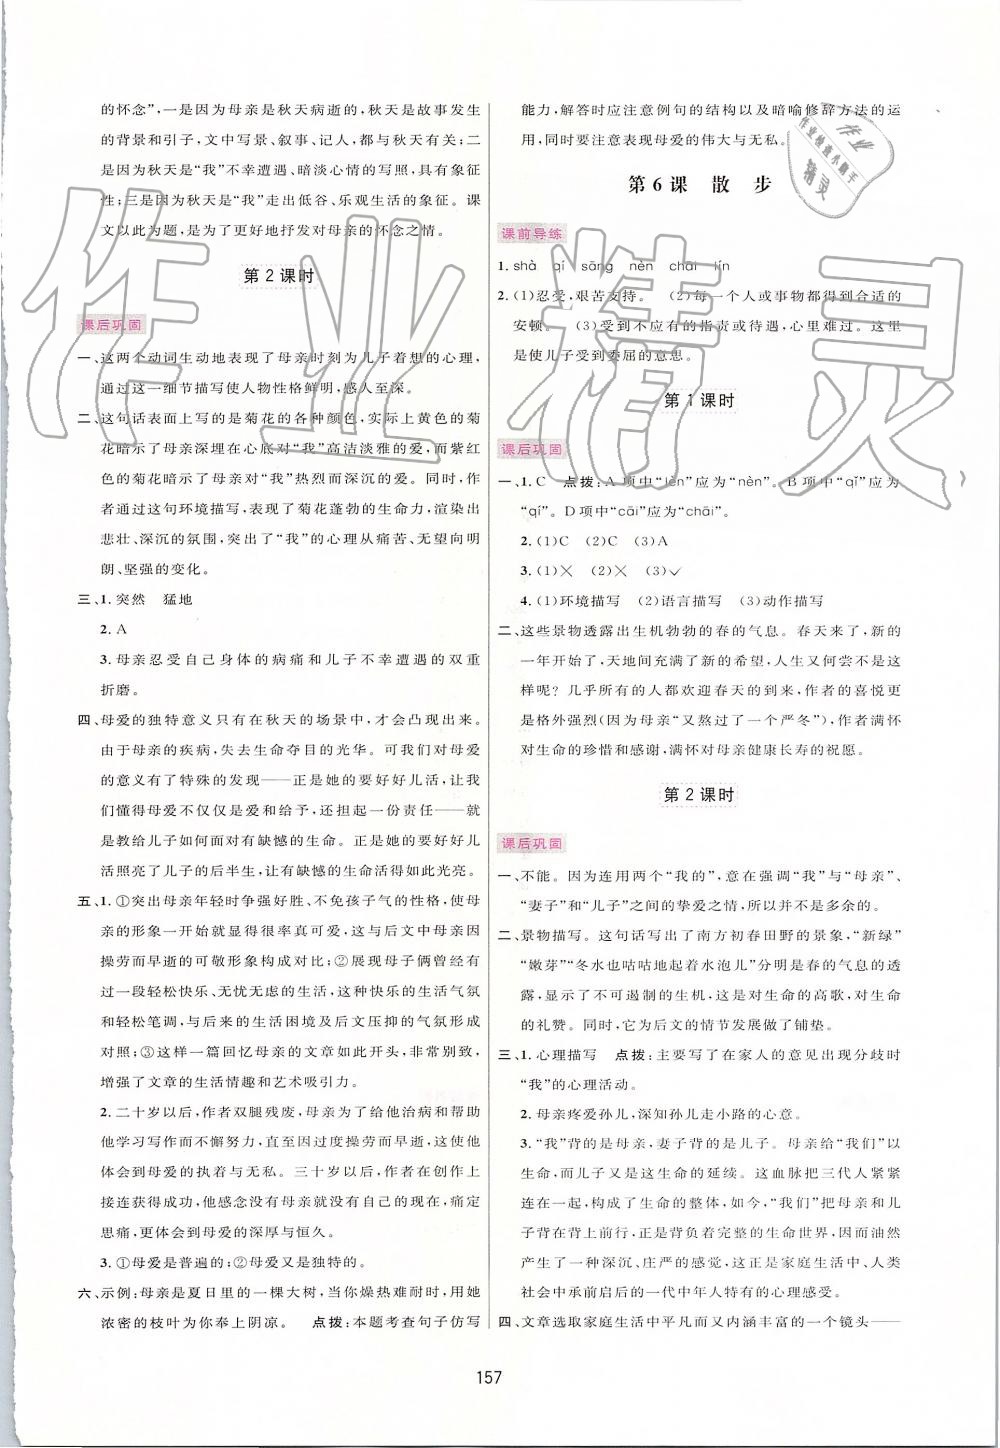 的怀念”,一是因为母亲是秋天病逝的,秋天是故事发生
的背景和引子,文中写景、叙事、记人,都与秋天相关;二
是因为秋天是“我”不幸遭遇、暗淡心情的写照,具有象征
性;三是因为秋天是“我”走出低谷、乐观生活的象征。课
文以此为题,是为了更好地抒发对母亲的怀念之情。
第2课时
课后巩固
一、这两个动词生动地表现了母亲时刻为儿子着想的心理,
通过这一细节描写使人物性格鲜明,感人至深。
二、这句话表面上写的是菊花的各种颜色,实际上黄色的菊
花暗示了母亲深埋在心底对“我”高洁淡雅的爱,而紫红
色的菊花暗示了母亲对“我”热烈而深沉的爱。同时,作者
通过这句环境描写,表现了菊花蓬勃的生命力,渲染出
悲壮、深沉的氛围,突出了“我”的心理从痛苦、无望向明
朗、坚强的变化。
三、1.突然　猛地
2.A
3.母亲忍受自己身体的病痛和儿子不幸遭遇的双重
折磨。
四、母爱的独特意义只有在秋天的场景中,才会凸现出来。
由于母亲的疾病,失去生命夺目的光华。可我们对母爱
的意义有了特殊的发现——正是她的要好好儿活,让我
们懂得母爱不仅仅是爱和给予,还担起一份责任——就
是教给儿子如何面对有缺憾的生命。正是她的要好好儿
活照亮了儿子的后半生,让有缺憾的生命从此如此光亮。
五、1.①突出母亲年轻时争强好胜、不免孩子气的性格,使母
亲的形象一开始就显得很率真可爱,这与后文中母亲因
操劳而早逝的可敬可叹对比鲜明;②展现母子俩曾经有
过一段轻松快乐、无忧无虑的生活,这种快乐的生活气氛
和轻松笔调,与后来的生活困境及后文压抑的气氛形成
对照;③这样一篇回忆母亲的文章如此开头,非常别致,
增强了文章的生活情趣和艺术吸引力。
2.二十岁以后,作者双腿残废,母亲为给他治病和帮助
他学习写作而不懈努力,直至因过度操劳而早逝,这使他
体会到母爱的执着与无私。三十岁以后,作者在创作上
接连获得成功,他感念没有母亲就没有自己的现在,痛定
思痛,更体会到母爱的深厚与恒久。
3.①母爱是普遍的;②母爱又是独特的。
六、示例:母亲是夏日里的一棵大树,当你燥热难耐时,用她
浓密的枝叶为你奉上阴凉。　点拨:本题考查句子仿写
能力,解答时应注意例句的结构以及暗喻修辞方法的运
用,同时要注意表现母爱的伟大与无私。
第6课　散　步
课前导练
1.shà　qí　sāng　nèn　chāi　lín
2.(1)忍受,艰苦支持。　(2)每一个人或事物都得到合适的
安顿。　(3)受到不应有的指责或待遇,心里难过。这里
是使儿子受到委屈的意思。
第1课时
课后巩固
一、1.C　点拨:A项中“lèn”应为“nèn”。B项中“qǐ”应为
“qí”。D项中“cāi”应为“chāi”。
2.(1)C　(2)C　(3)A
3.(1)×　(2)×　(3)✓
4.(1)环境描写　(2)语言描写　(3)动作描写
二、这些景物透露出生机勃勃的春的气息。春天来了,新的
一年开始了,天地间充满了新的希望,人生又何尝不是这
样呢?几乎所有的人都欢迎春天的到来,作者的喜悦更
是格外强烈(因为母亲“又熬过了一个严冬”),作者满怀
对生命的珍惜和感谢,满怀对母亲健康长寿的祝愿。
第2课时
课后巩固
一、不能。因为连用两个“我的”,意在强调“我”与“母亲”、
“妻子”和“儿子”之间的挚爱之情,所以并不是多余的。
二、景物描写。这句话写出了南方初春田野的景象,“新绿”
“嫩芽”“冬水也咕咕地起着水泡儿”分明是春的气息的透
露,显示了不可遏制的生机,这是对生命的高歌,对生命
的礼赞。同时,它为后文的情节发展做了铺垫。
三、1.心理描写　点拨:主要写了在家人的意见出现分歧时
“我”的心理活动。
2.母亲疼爱孙儿,深知孙儿走小路的心意。
3.“我”背的是母亲,妻子背的是儿子。母亲给“我们”以
生命,而儿子又是这生命的延续。这血脉把三代人紧紧
连在一起,构成了生命的整体,如今,“我们”把母亲和儿
子背在背上前行,正是背负着完整的生命世界,因而油然
产生了一种深沉、庄严的感觉,这正是家庭生活中、人类
社会中承前启后的一代中年人特有的心理感受。
四、文章选取家庭生活中平凡而又内涵丰富的一个镜头——
157
作业精灵
作业
作业检查小助手
精灵